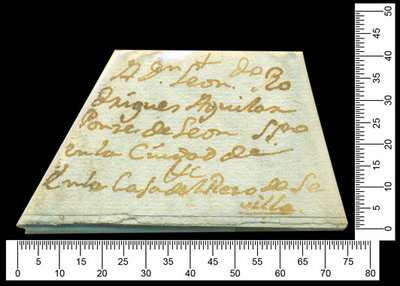 Leon. de Ro
drigues Aguilar
Ponse de Leon
en la Ciudad de
En la Casa de de Se
villa.
50
45
40
35
30
25
20
15
10
5
0
0 5 10 15 20 25 30 35 40 45 50 55 60 65 70 75 80